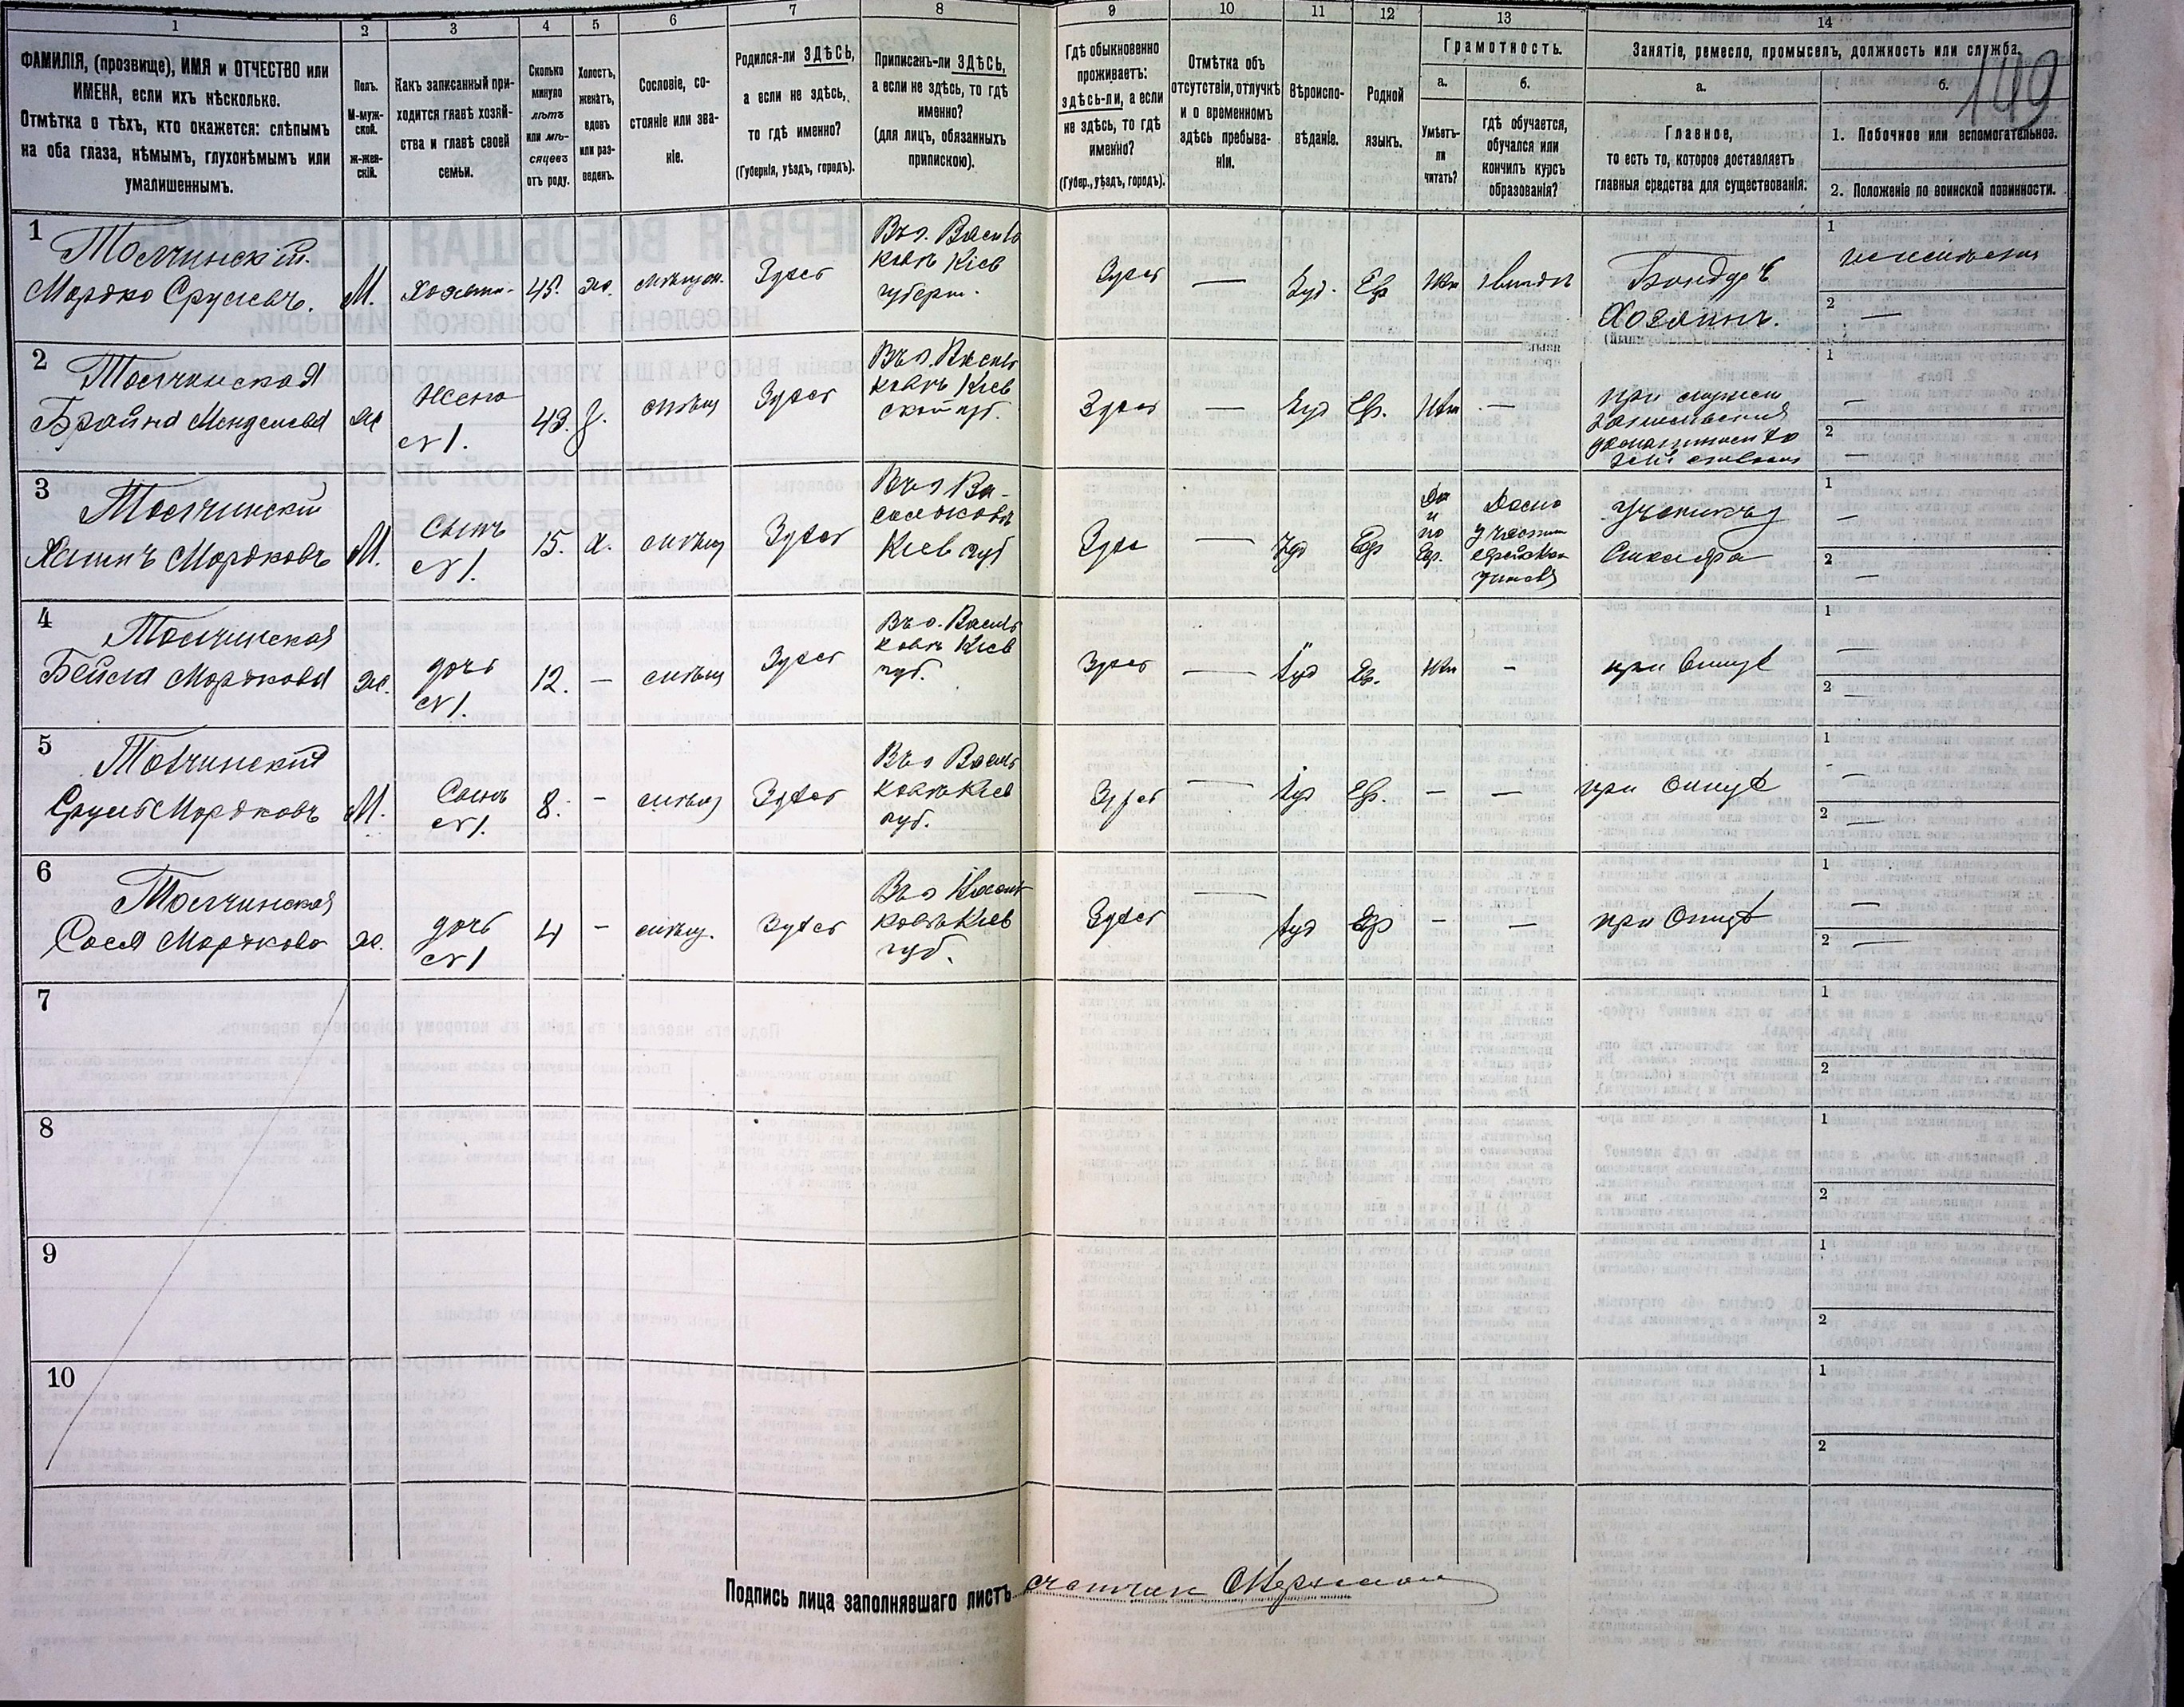 1 2 3 4 5 6 7 8 9 10 11 12 13 14
ФАМИЛІЯ, (прозвище), ИМЯ и ОТЧЕСТВО или
ИМЕНА, если ихъ нѣсколько.
Отмѣтка о тѣхъ, кто окажется: слѣпымъ
на оба глаза, нѣмымъ, глухонѣмымъ или
умалишеннымъ.
Полъ.
М-муж-
ской.
ж-жен-
скій.
Какъ записанный при-
ходится главѣ хозяй-
ства и главѣ своей
семьи.
Сколько
минуло
лѣтъ
или мѣ-
сяцевъ
отъ роду.
Холостъ,
женатъ,
вдовъ
или раз-
веденъ.
Сословіе, со-
стояніе или зва-
ніе.
Родился-ли ЗДѢСЬ,
а если не здѣсь,
то гдѣ именно?
(Губернія, уѣздъ, городъ).
Приписанъ-ли ЗДѢСЬ,
а если не здѣсь, то гдѣ
именно?
(для лицъ, обязанныхъ
припискою).
Гдѣ обыкновенно
проживаетъ:
здѣсь-ли, а если
не здѣсь, то гдѣ
именно?
(Губер., уѣздъ, городъ).
Отмѣтка объ
отсутствіи, отлучкѣ
и о временномъ
здѣсь пребыва-
ніи.
Вѣроиспо-
вѣданіе.
Родной
языкъ.
Грамотность.
а.
Умѣетъ-
ли
читать?
б.
гдѣ обучается,
обучался или
кончилъ курсъ
образованія?
Занятіе, ремесло, промыселъ, должность или служба.
149
а.
Главное,
то есть то, которое доставляетъ
главныя средства для существованія:
б.
1. Побочное или вспомогательное.
2. Положеніе по воинской повинности.
1
Толчинскій
Мордко Срулевъ.
М.
Хозяинъ
45.
ж.
мѣщан.
Здѣсь
Въ о. Василь
ковѣ Кіев
губерн.
Здѣсь
—
Іуд.
Евр
Нѣт
Бондарь
Хозяинъ.
1
2 —
2
Толчинская
Брайна Менделева
ж
Жена
№ 1.
43.
З.
мѣщ
Здѣсь
Въ о. Василь
ковѣ Кіев
ской губ.
Здѣсь
—
Іуд
Евр.
Нѣт
—
при мужѣ
1 —
2 —
3
Толчинскій
Мордковъ
М.
Сынъ
№ 1.
15.
х.
мѣщ
Здѣсь
Въ о Ва-
сильковѣ
Кіев губ
Здѣсь
—
Іуд
Евр
Да
и
по
Евр.
Ученикъ
Столяра
1 —
2 —
4
Толчинская
Бейла Мордкова
ж.
дочь
№ 1.
12.
—
мѣщ
Здѣсь
Въ о. Василь
ковѣ Кіев
губ.
Здѣсь
—
Іуд
Евр.
Нѣт
—
при Отцѣ
1 —
2 —
5
Толчинскій
Сруль Мордковъ
М.
Сынъ
№ 1.
8.
—
мѣщ
Здѣсь
Въ о Василь
ковѣ Кіев
губ.
Здѣсь
—
Іуд
Евр.
—
—
при Отцѣ
1 —
2 —
6
Толчинская
Сося Мордкова
ж.
дочь
№ 1
4
—
мѣщ.
Здѣсь
Въ о Василь
ковѣ Кіев
губ.
Здѣсь
—
Іуд
Евр
—
—
при Отцѣ
1 —
2 —
7
1
2
8
1
2
9
1
2
10
1
2
Подпись лица заполнявшаго листъ счетчик